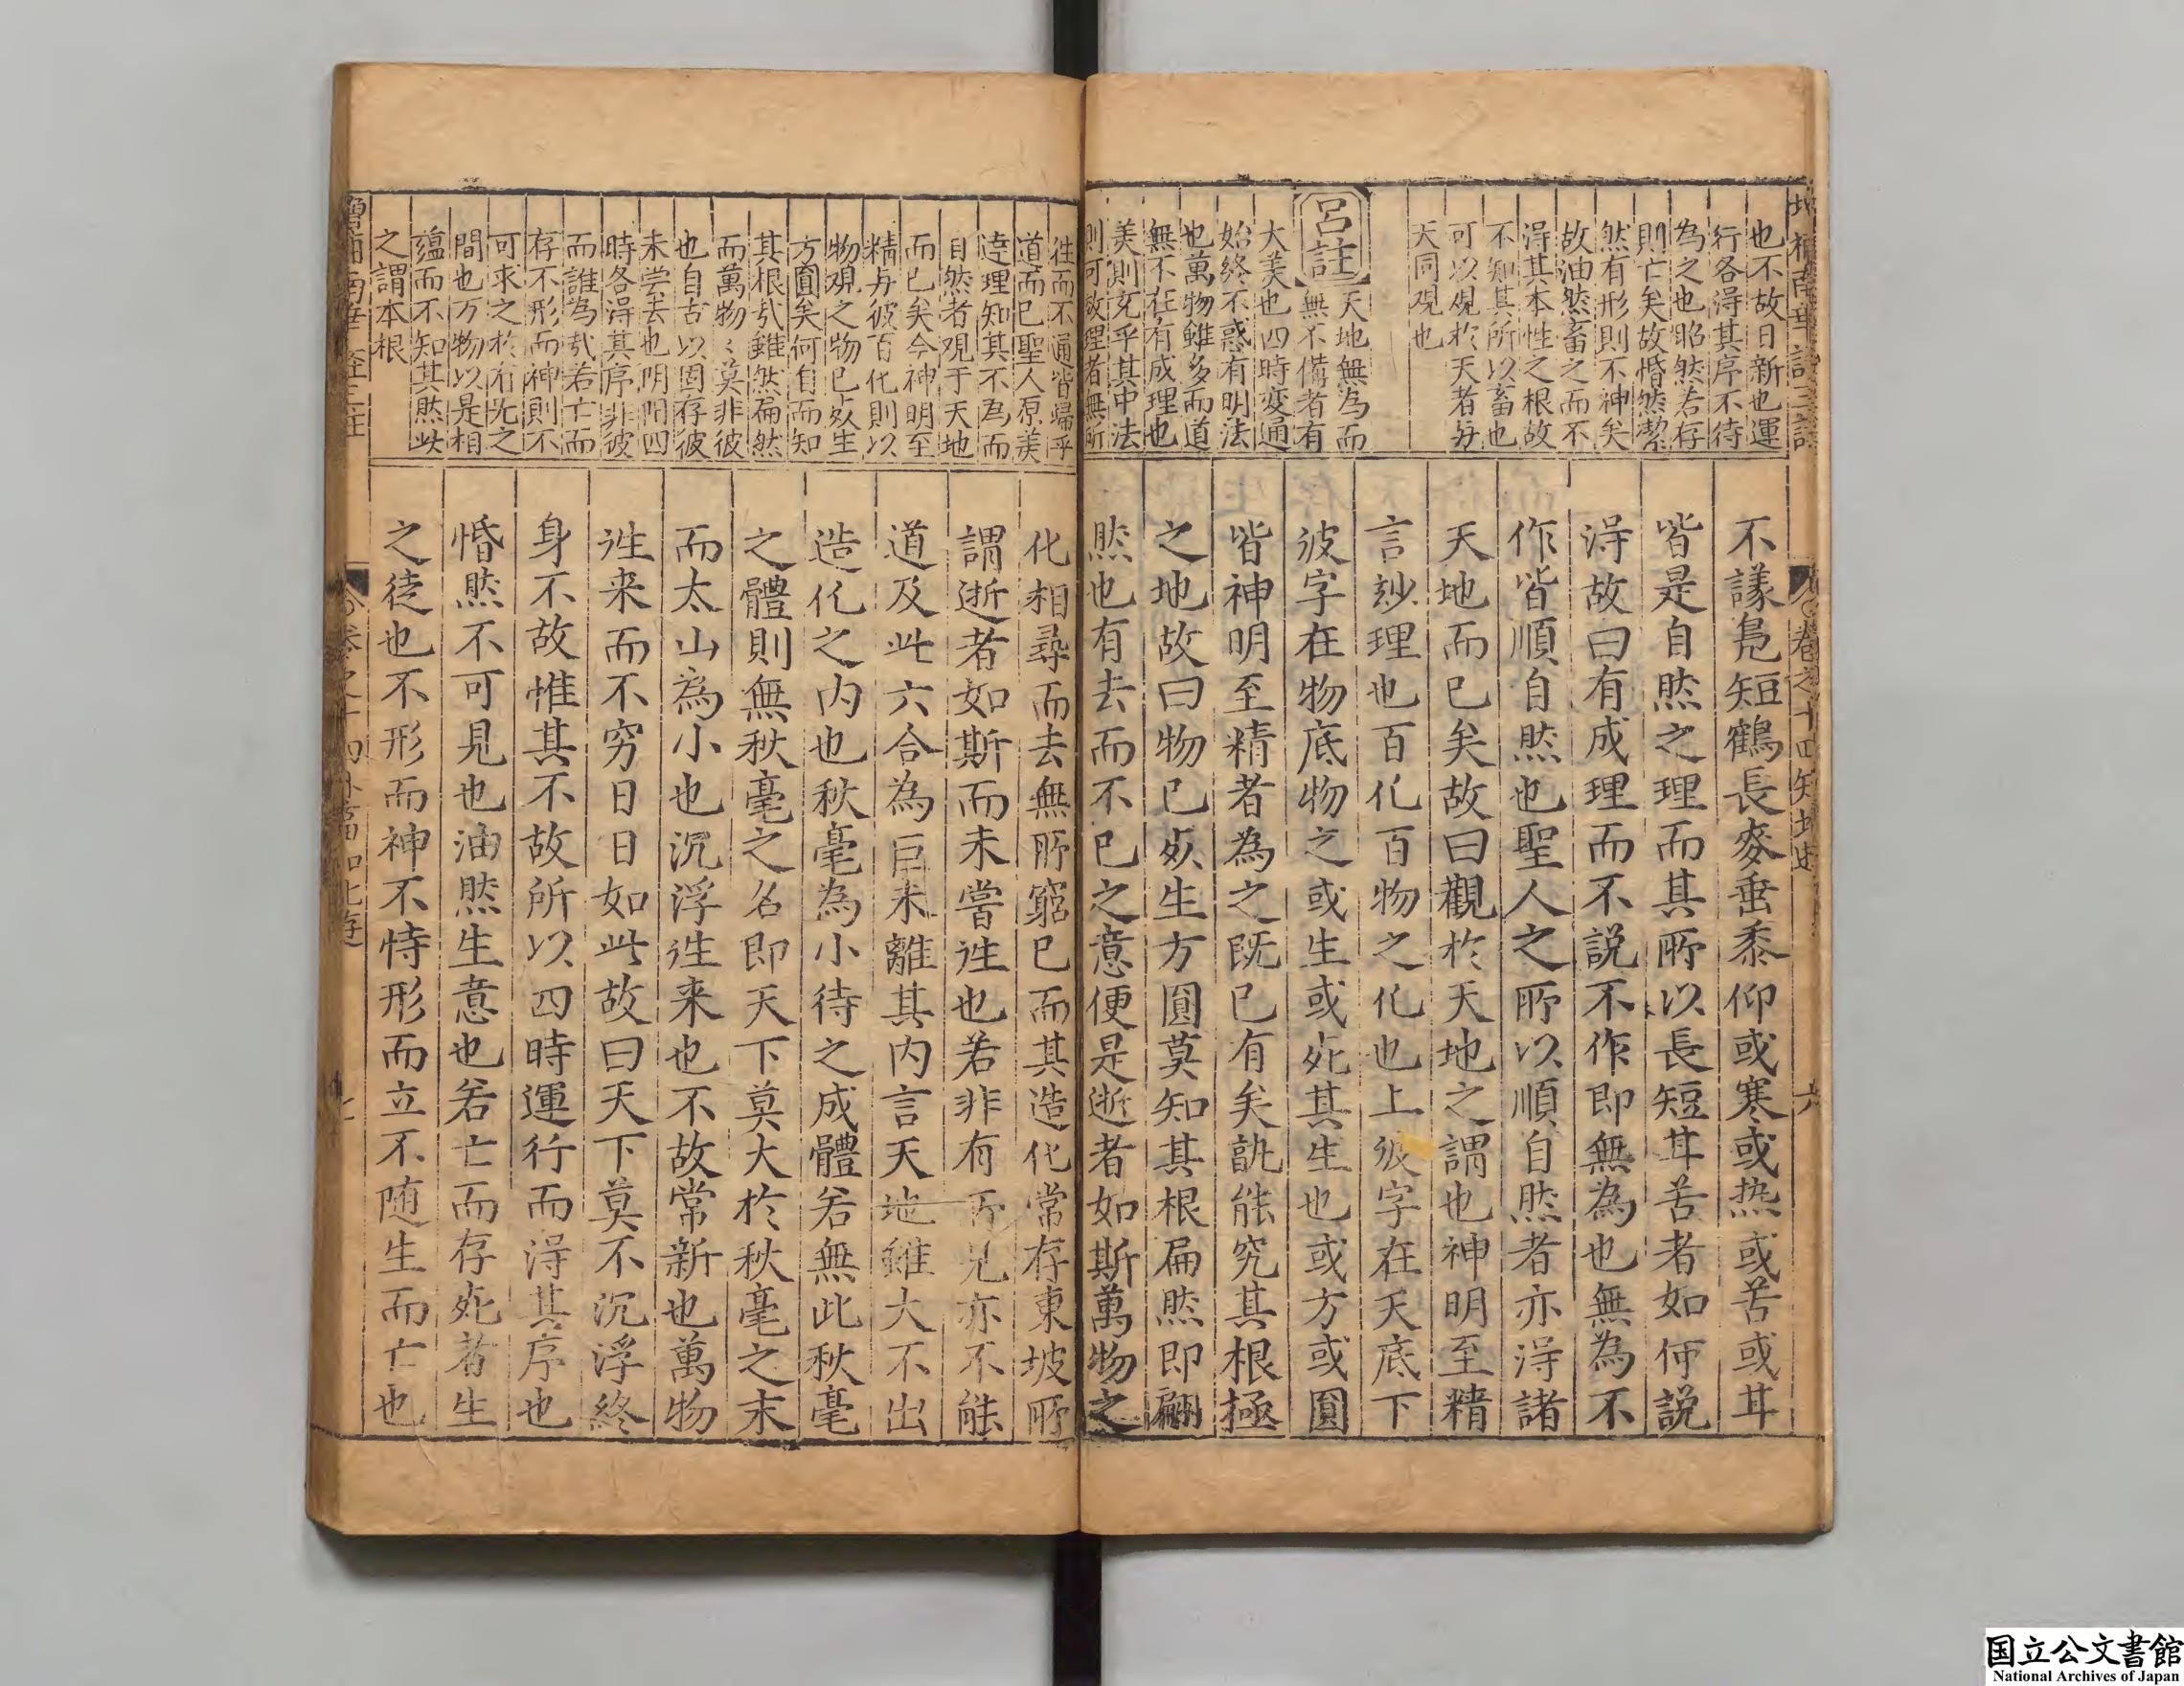 也不故日新也運
行各淂其序不待
為之也昭然若存
則亡矣故惛然潔
然有形則不神矣
故油然畜之而不
淂其本性之根故
不知其所以畜也
可以观於天者与
天同观也
呂註
天地無為而
無不備者有
大美也四時变通
始終不惑有明法
也萬物雖多而道
無不在有成理也
美則充乎其中法
則可效理者無所
徃而不通皆帰乎
道而已聖人原美
逹理知其不為而
自然者观于天地
而已矣今神明至
精与彼百化則以
物观之物已㱠生
方圓矣何自而知
其根㢤雖然扁然
而萬物〻莫非彼
也自古以固存彼
未尝去也阴阳四
時各淂其序非彼
而誰為㢤若亡而
存不形而神則不
可求之於有无之
間也万物以是相
蕴而不知其然此
之謂本根
卷之十四知北遊
六
不議凫短鶴長麥垂黍仰或寒或热或苦或甘
皆是自然之理而其所以長短甘苦者如何説
淂故曰有成理而不説不作即無為也無為不
作皆順自然也聖人之所以順自然者亦淂諸
天地而已矣故曰觀於天地之謂也神明至精
言玅理也百化百物之化也上彼字在天底下
彼字在物底物之或生或死其生也或方或圓
皆神明至精者為之既已有矣孰能究其根極
之地故曰物已㱠生方圓莫知其根扁然即翩
然也有去而不已之意便是逝者如斯萬物之
化相尋而去無所窮已而其造化常存東坡所
謂逝者如斯而未嘗徃也若非有所見亦不能
道及此六合為巨未離其内言天地雖大不出
造化之内也秋毫為小待之成體若無此秋毫
之體則無秋毫之名即天下莫大於秋毫之末
而太山為小也沉浮徃来也不故常新也萬物
徃来而不穷日日如此故曰天下莫不沉浮終
身不故惟其不故所以四時運行而淂其序也
惛然不可見也油然生意也若亡而存死者生
之徒也不形而神不恃形而立不随生而亡也
国立公文書館
National Archives of Japan